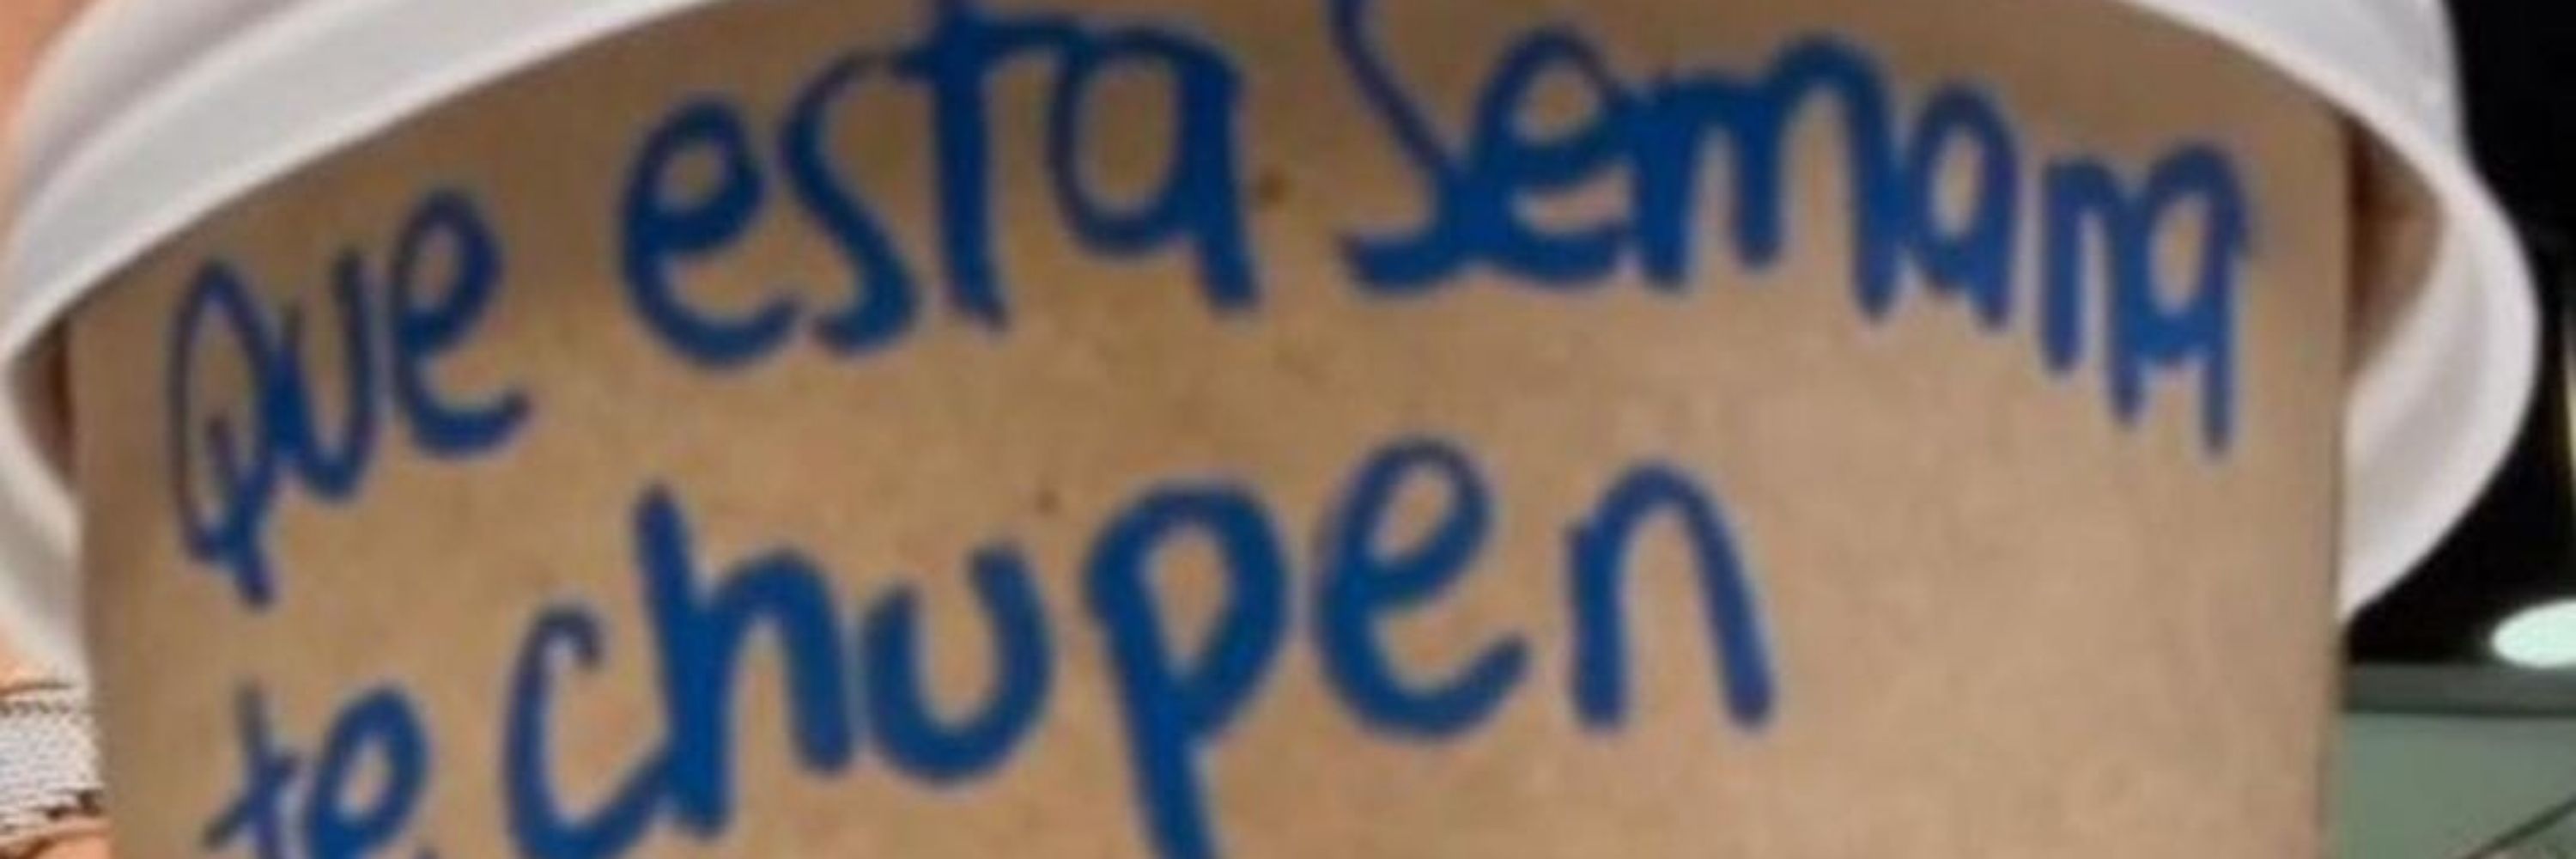 Que esta semana
te chupen